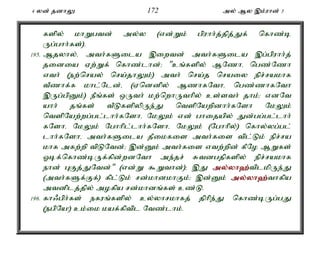 4 லன் தனாலூ 172 அல் ஆல இம்ரான் 3
களில் மாறுபவன் அல்ல (என்றும் பிரார்த்தித்துக் கொண்டி
ருப்பார்கள்).
195. ஆதலால், அவர்களுடைய இறைவன் அவர்களுடைய இப்பிரார்த்
தனையை ஏற்றுக் கொண்டான்; "உங்களில் ஆணோ, பெண்ணோ
எவர் (நற்செயல் செய்தாலும்) அவர் செய்த செயலை நிச்சயமாக
வீணாக்க மாட்டேன், (ஏனெனில் ஆணாகவோ, பெண்ணாகவோ
இருப்பினும்) நீங்கள் ஒருவர் மற்றொருவரில் உள்ளவர் தாம்; எனவே
யார் தங்கள் வீடுகளிலிருந்து வெளியேறினார்களோ மேலும்
வெளியேற்றப்பட்டார்களோ, மேலும் என் பாதையில் துன்பப்பட்டார்
களோ, மேலும் போரிட்டார்களோ, மேலும் (போரில்) கொல்லப்பட்
டார்களோ, அவர்களுடைய தீமைகளை அவர்களை விட்டும் நிச்சய
மாக அகற்றி விடுவேன்; இன்னும் அவர்களை எவற்றின் கீழே ஆறுகள்
ஓடிக்கொண்டிருக்கின்றனவோ அந்தச் சுவனபதிகளில் நிச்சயமாக
நான் புகுத்துவேன்" (என்று கூறுவான்); இது அல்லாஹ்விடமிருந்து
(அவர்களுக்குக்) கிட்டும் சன்மானமாகும்; இன்னும் அல்லாஹ்வாகிய
அவனிடத்தில் அழகிய சன்மானங்கள் உண்டு.
196. காஃபிர்கள் நகரங்களில் உல்லாசமாகத் திரிந்து கொண்டிருப்பது
(நபியே!) உம்மை மயக்கிவிட வேண்டாம்.